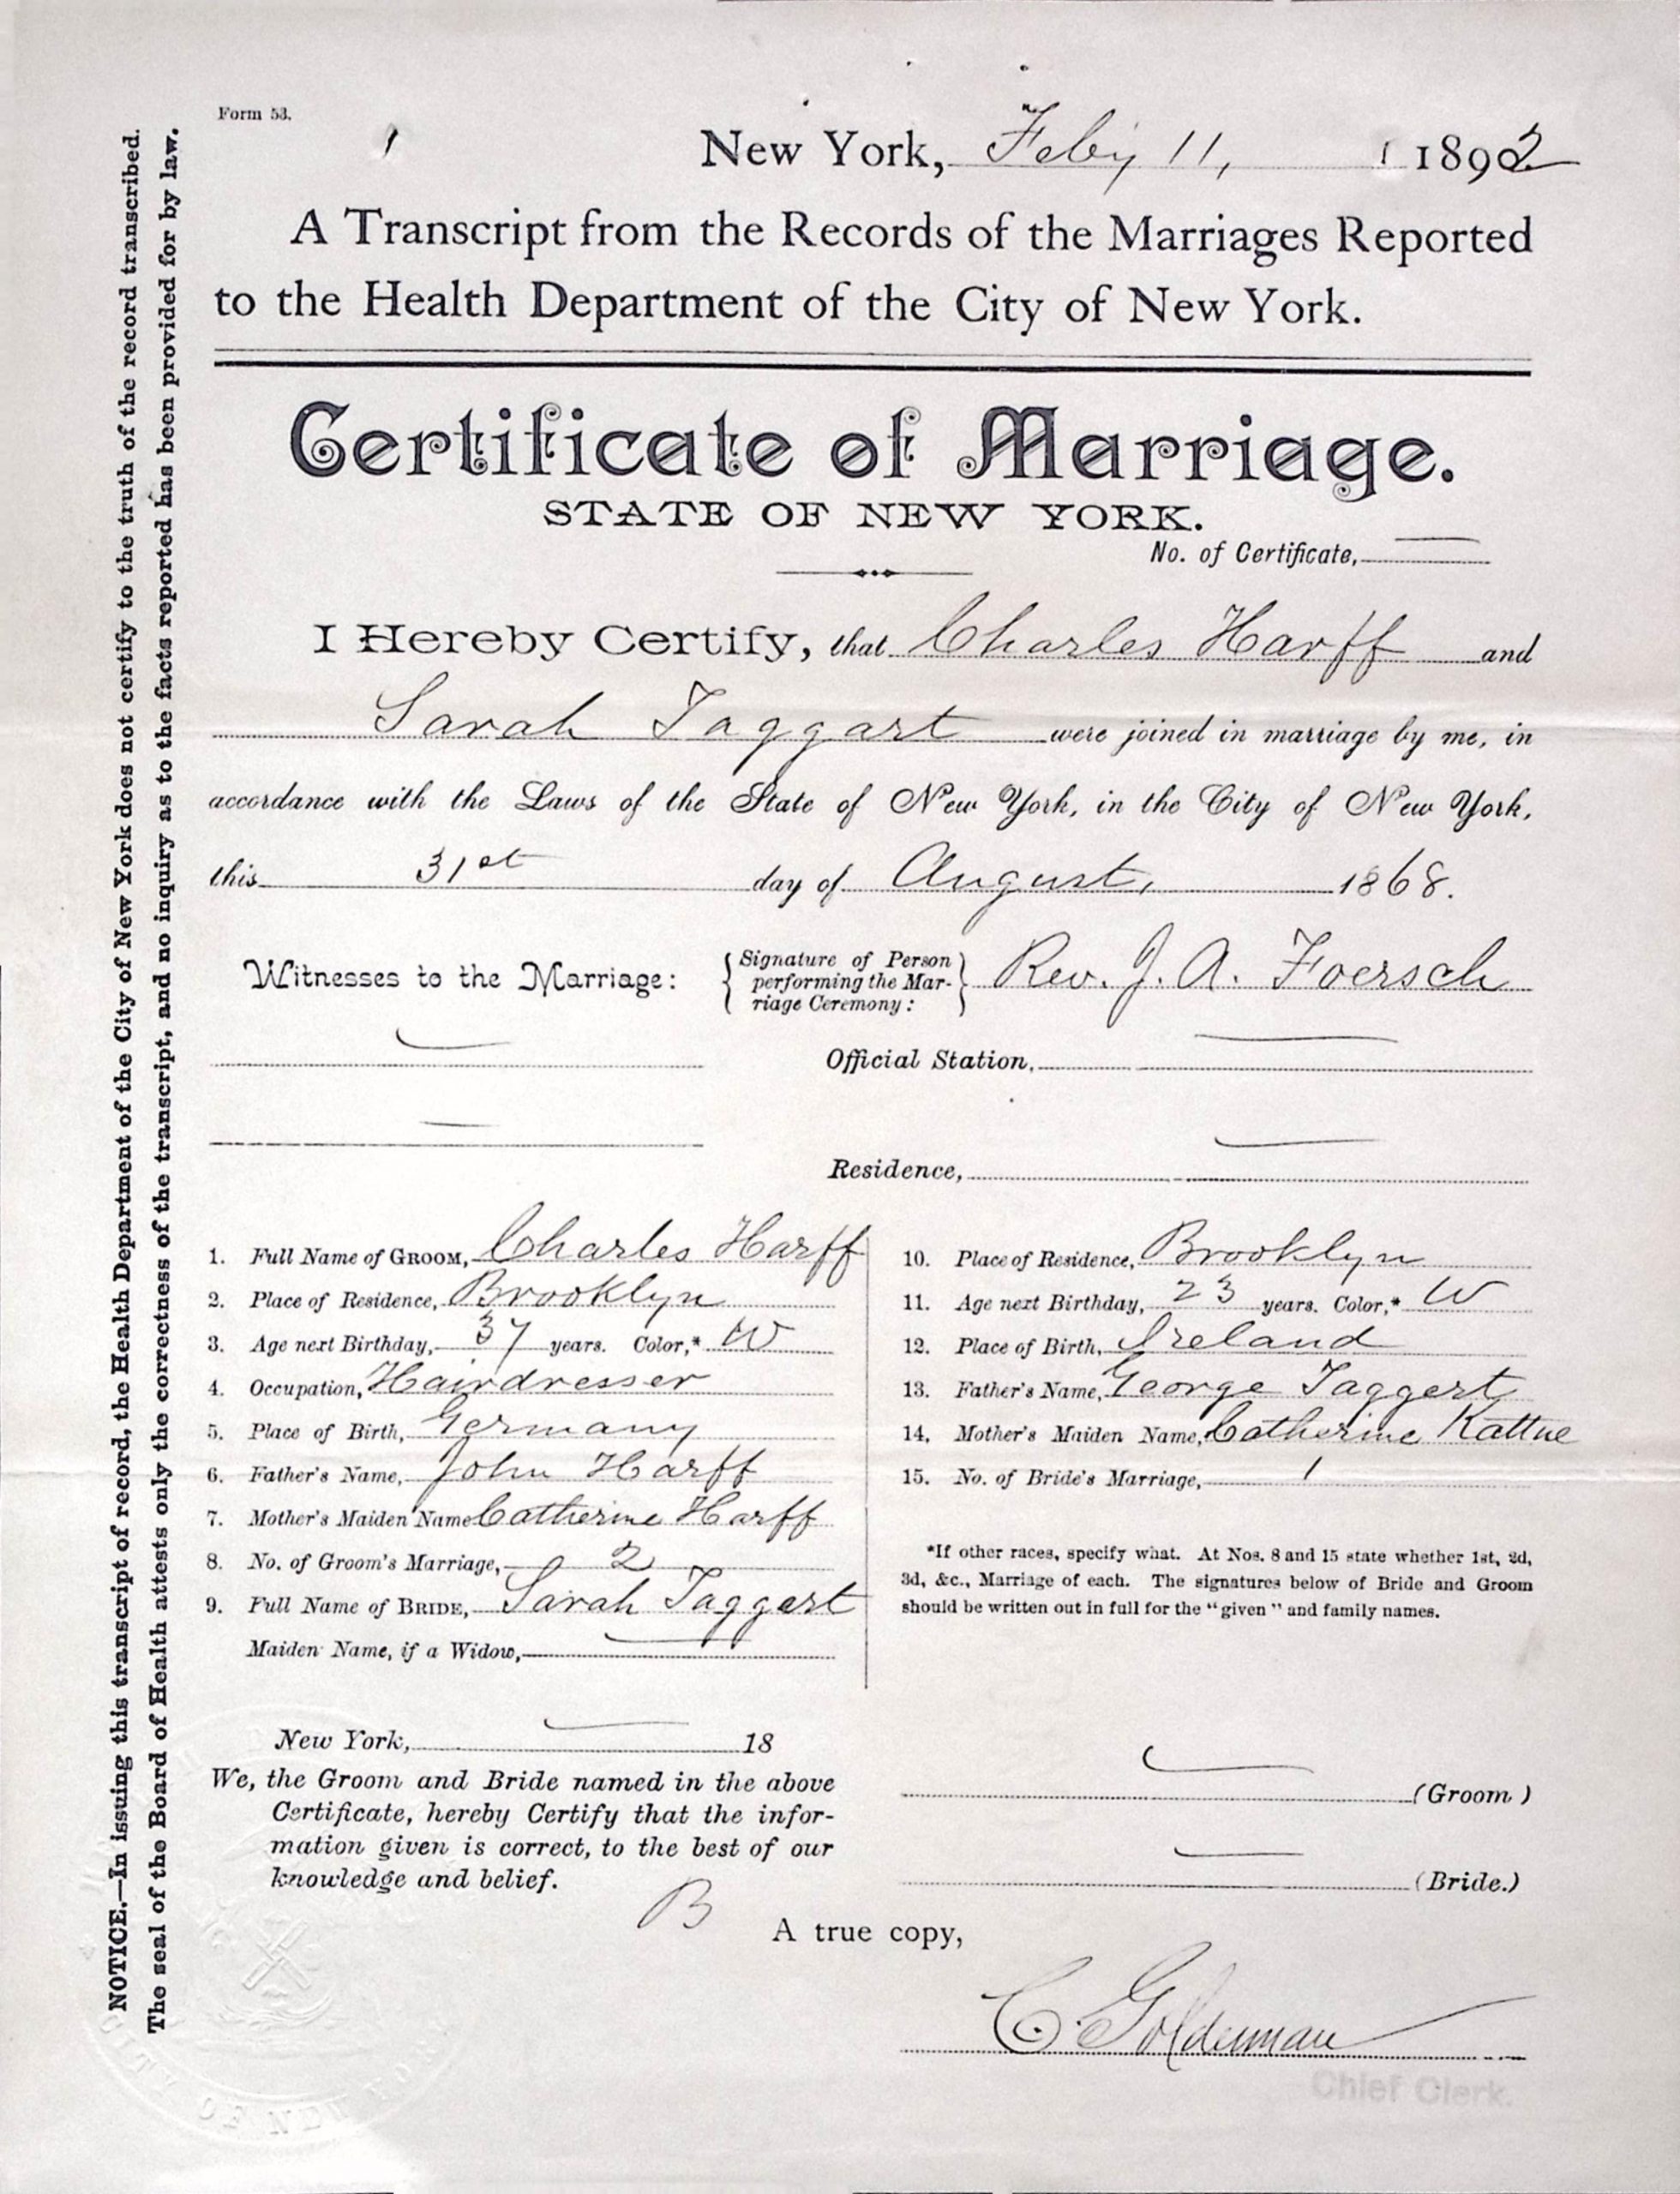 Form 53.
1
New York, Feby 11, 1892
A Transcript from the Records of the Marriages Reported
to the Health Department of the City of New York.
Certificate of Marriage.
STATE OF NEW YORK.
No. of Certificate,
I Hereby Certify, that Charles Harff and
Sarah Taggart were joined in marriage by me, in
accordance with the Laws of the State of New York, in the City of New York,
this 31st day of August, 1868.
Witnesses to the Marriage:
Signature of Person
performing the Mar-
riage Ceremony:
Rev. J. A. Foersch
Official Station,
Residence,
1. Full Name of GROOM, Charles Harff
2. Place of Residence, Brooklyn
3. Age next Birthday, 37 years. Color,* W
4. Occupation, Hairdresser
5. Place of Birth, Germany
6. Father's Name, John Harff
7. Mother's Maiden Name Catherine Harff
8. No. of Groom's Marriage, 2
9. Full Name of BRIDE, Sarah Taggart
Maiden Name, if a Widow,
10. Place of Residence, Brooklyn
11. Age next Birthday, 23 years. Color,* W
12. Place of Birth, Ireland
13. Father's Name, George Taggert
14. Mother's Maiden Name, Catherine Kattne
15. No. of Bride's Marriage, 1
*If other races, specify what. At Nos. 8 and 15 state whether 1st, 2d,
3d, &c., Marriage of each. The signatures below of Bride and Groom
should be written out in full for the "given" and family names.
New York, 18
We, the Groom and Bride named in the above
Certificate, hereby Certify that the infor-
mation given is correct, to the best of our
knowledge and belief.
(Groom)
(Bride.)
B
A true copy,
C. Goldenman
Chief Clerk.
NOTICE.—In issuing this transcript of record, the Health Department of the City of New York does not certify to the truth of the record transcribed.
The seal of the Board of Health attests only the correctness of the transcript, and no inquiry as to the facts reported has been provided for by law.
OF NEW YORK